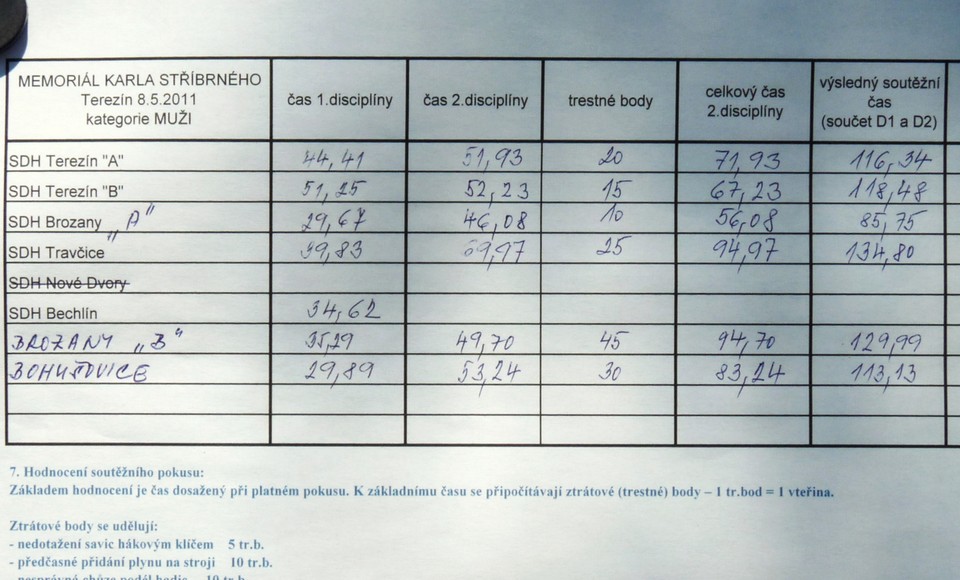 MEMORIÁL KARLA STŘÍBRNÉHO
Terezín 8.5.2011
kategorie MUŽI
čas 1.disciplíny
čas 2.disciplíny
trestné body
celkový čas
2.disciplíny
výsledný soutěžní
čas
(součet D1 a D2)
SDH Terezín "A" 44,41 51,93 20 71,93 116,34
SDH Terezín "B" 51,25 52,23 15 67,23 118,48
SDH Brozany „A“ 29,67 46,08 10 56,08 85,75
SDH Travčice 39,83 69,97 25 94,97 134,80
SDH Nové Dvory
SDH Bechlín 34,62
BROZANY „B“ 35,29 49,70 45 94,70 129,99
BOHUŠOVICE 29,89 53,24 30 83,24 113,13
7. Hodnocení soutěžního pokusu:
Základem hodnocení je čas dosažený při platném pokusu. K základnímu času se připočítávají ztrátové (trestné) body – 1 tr.bod = 1 vteřina.
Ztrátové body se udělují:
- nedotažení savic hákovým klíčem 5 tr.b.
- předčasné přidání plynu na stroji 10 tr.b.